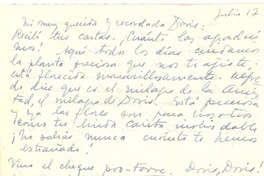 Julio 12
Mi muy querida y recordada Doris:
Recibí tus cartas. ¡Cuánto las agradecimos! Aquí todos los días cuidamos
la planta preciosa que nos dejaste,
está florecida maravillosamente.
dice que es el milagro de la Amis-
tad, el milagro de Doris. Está preciosa
y ya las flores son para nosotros
como tu linda carita inolvidable
¡No sabías nunca cuánto te hemos
extrañado!
Vino el cheque pro-Torre. Doris, Doris!